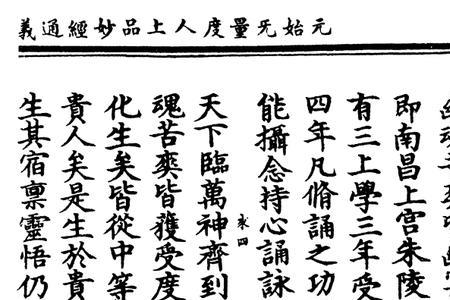 元始无量度人上品妙經通義
即南昌上宮朱陵
有三上學三年受
四年凡脩誦之功
能攝念持心誦詠
來四
天下臨萬神齊到
魂苦爽皆獲受度
化生矣皆從中等
貴人矣是生於貴
生其宿禀靈悟仍